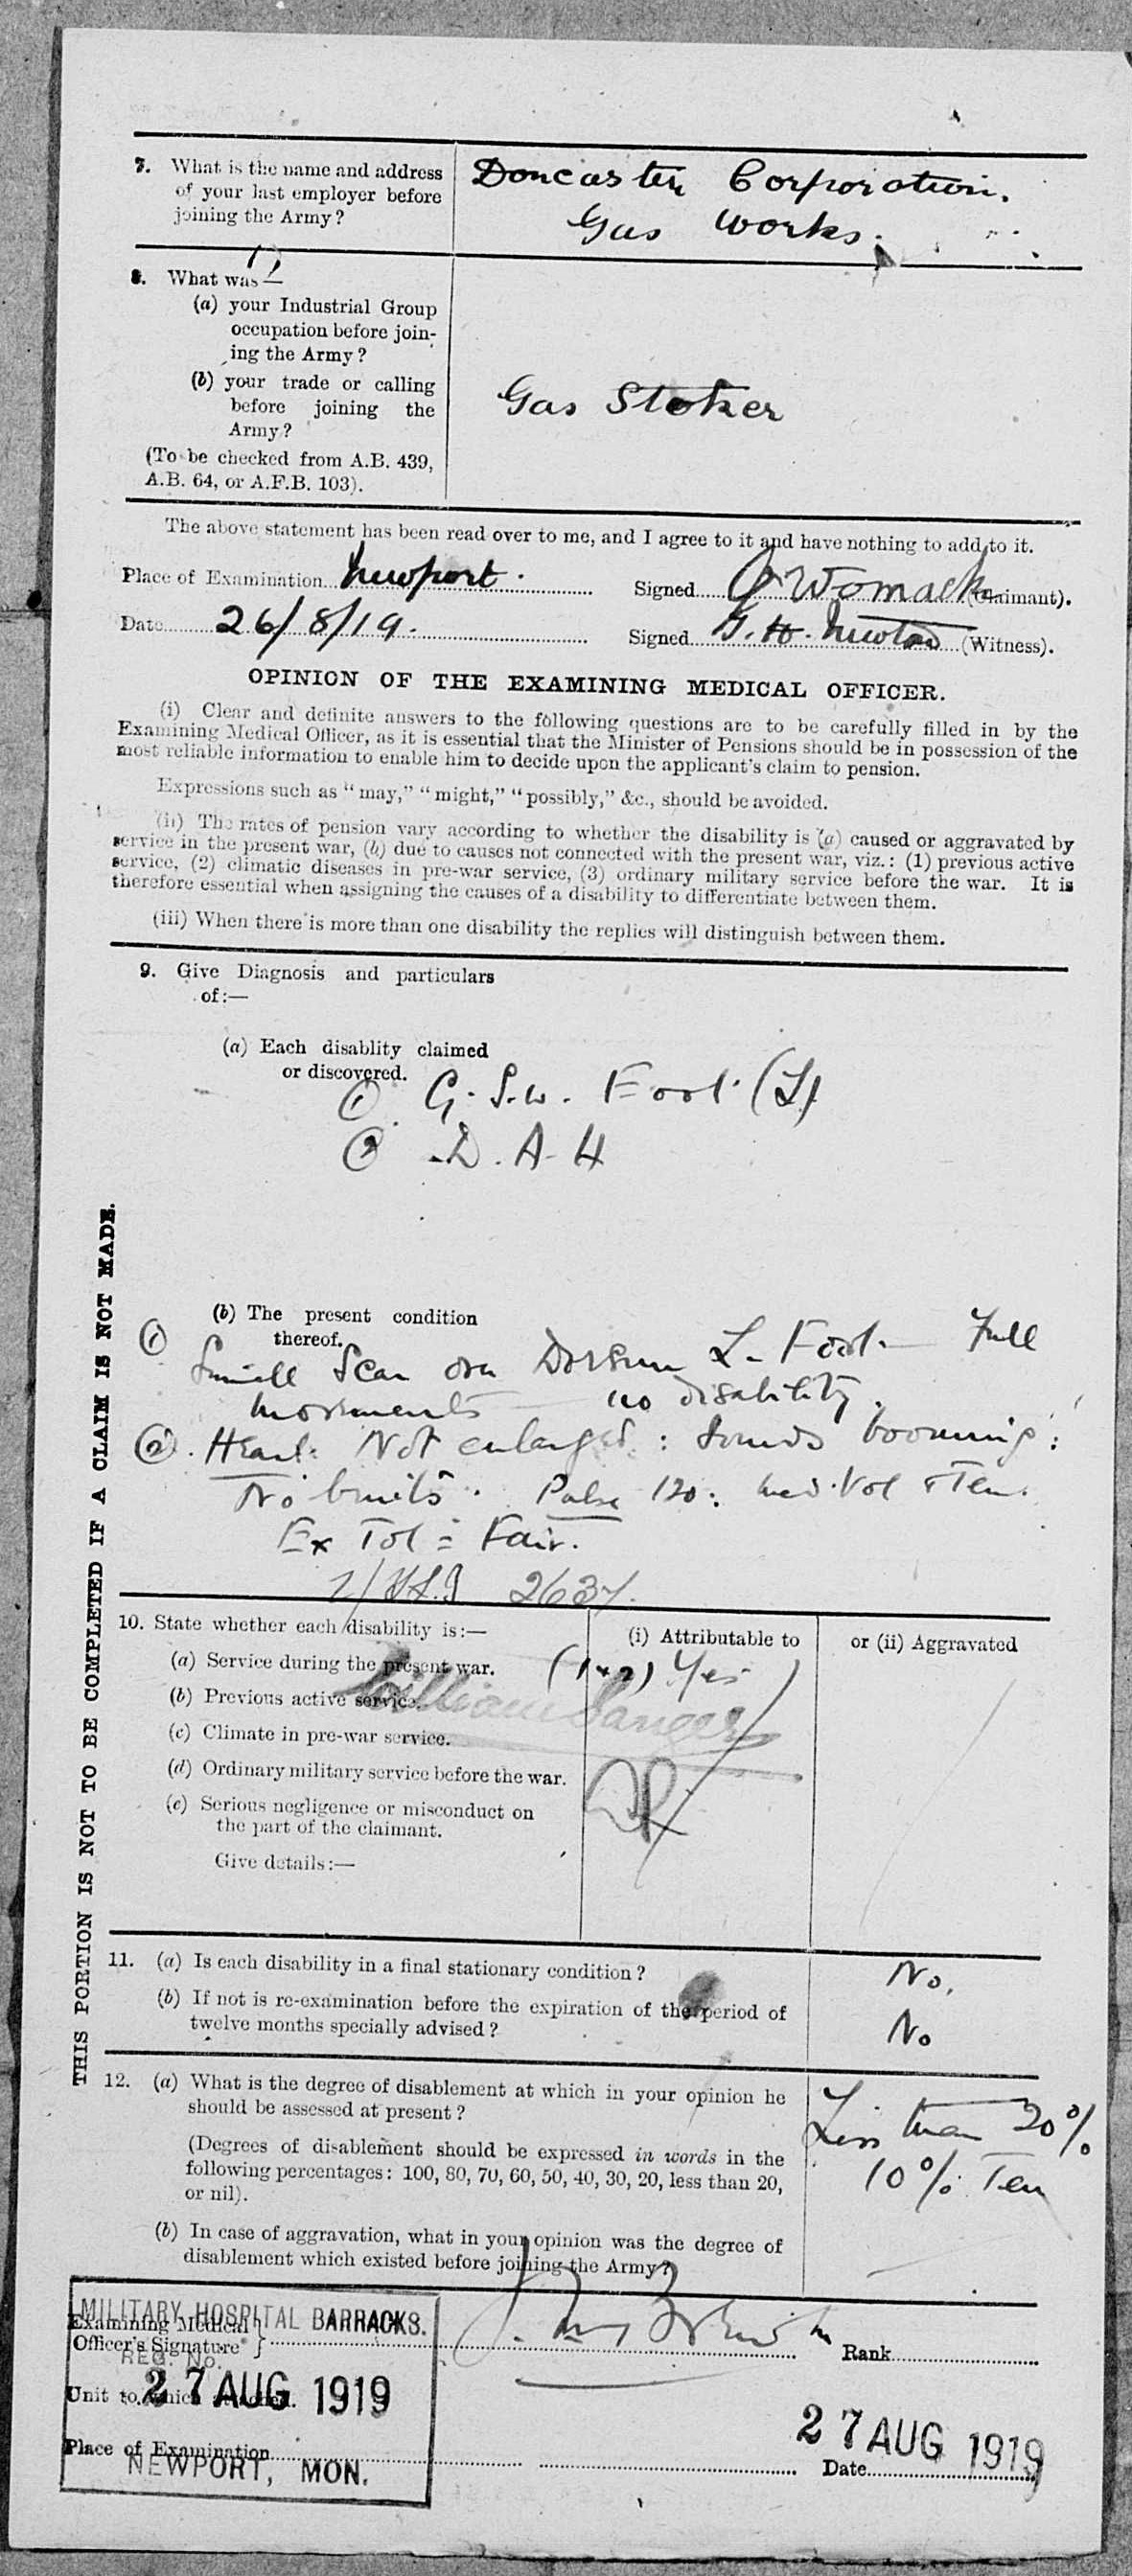 7. What is the name and address Doncaster Corporation.
of your last employer before Gas Works.
joining the Army?
8. What was—
(a) your Industrial Group
occupation before join-
ing the Army?
(b) your trade or calling Gas Stoker
before joining the
Army?
(To be checked from A.B. 439,
A.B. 64, or A.F.B. 103).
The above statement has been read over to me, and I agree to it and have nothing to add to it.
Place of Examination Newport. Signed J Womack (Claimant).
Date 26/8/19. Signed G. H. Newton (Witness).
OPINION OF THE EXAMINING MEDICAL OFFICER.
(i) Clear and definite answers to the following questions are to be carefully filled in by the
Examining Medical Officer, as it is essential that the Minister of Pensions should be in possession of the
most reliable information to enable him to decide upon the applicant's claim to pension.
Expressions such as "may," "might," "possibly," &c., should be avoided.
(ii) The rates of pension vary according to whether the disability is (a) caused or aggravated by
service in the present war, (b) due to causes not connected with the present war, viz.: (1) previous active
service, (2) climatic diseases in pre-war service, (3) ordinary military service before the war. It is
therefore essential when assigning the causes of a disability to differentiate between them.
(iii) When there is more than one disability the replies will distinguish between them.
9. Give Diagnosis and particulars
of:—
(a) Each disablity claimed
or discovered.
① G.S.W. Foot (L)
② D.A.H
THIS PORTION IS NOT TO BE COMPLETED IF A CLAIM IS NOT MADE.
(b) The present condition
thereof.
① Small Scar on Dorsum L. Foot. — Full
movements — no disability.
② Heart: Not enlarged: Sounds booming:
No bruits. Pulse 120: med. Vol & Ten.
Ex Tol = Fair.
2637.
10. State whether each disability is:— (i) Attributable to or (ii) Aggravated
(a) Service during the present war. (1+2) Yes
(b) Previous active service.
William Sanger
(c) Climate in pre-war service.
(d) Ordinary military service before the war.
(e) Serious negligence or misconduct on
the part of the claimant.
Give details:—
11. (a) Is each disability in a final stationary condition? No.
(b) If not is re-examination before the expiration of the period of
twelve months specially advised? No
12. (a) What is the degree of disablement at which in your opinion he
should be assessed at present? Less than 20%
(Degrees of disablement should be expressed in words in the
following percentages: 100, 80, 70, 60, 50, 40, 30, 20, less than 20, 10% Ten
or nil).
(b) In case of aggravation, what in your opinion was the degree of
disablement which existed before joining the Army?
MILITARY HOSPITAL BARRACKS.
Examining Medical
Officer's Signature Rank
REG. No.
Unit to which attached.
27 AUG 1919
27 AUG 1919
Place of Examination Date
NEWPORT, MON.